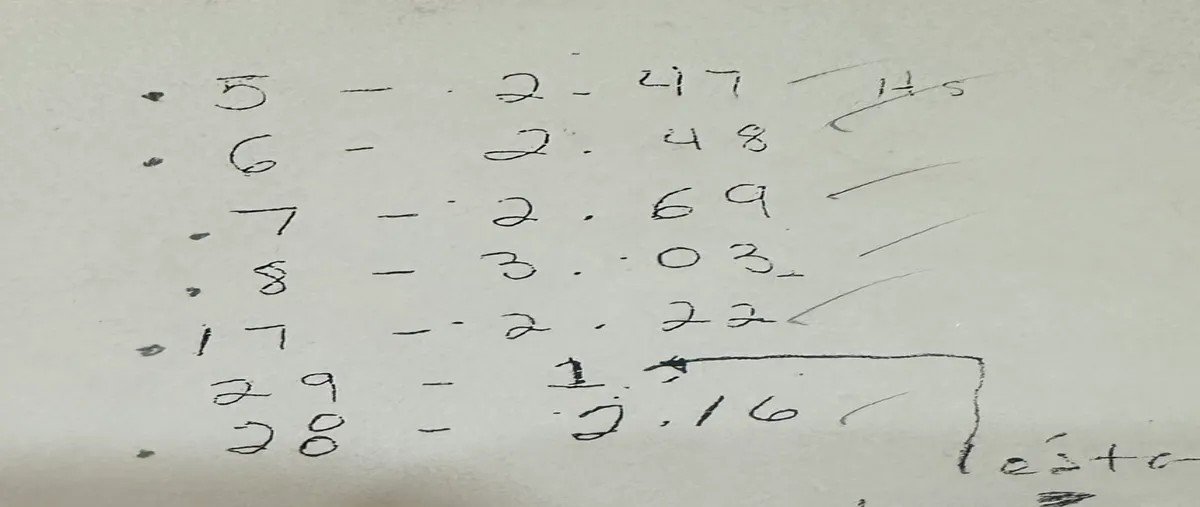 • 5 - 2.47 Hs
• 6 - 2.48
• 7 - 2.69
• 8 - 3.03
• 17 - 2.22
29 - 1.
• 28 - 2.16
esta